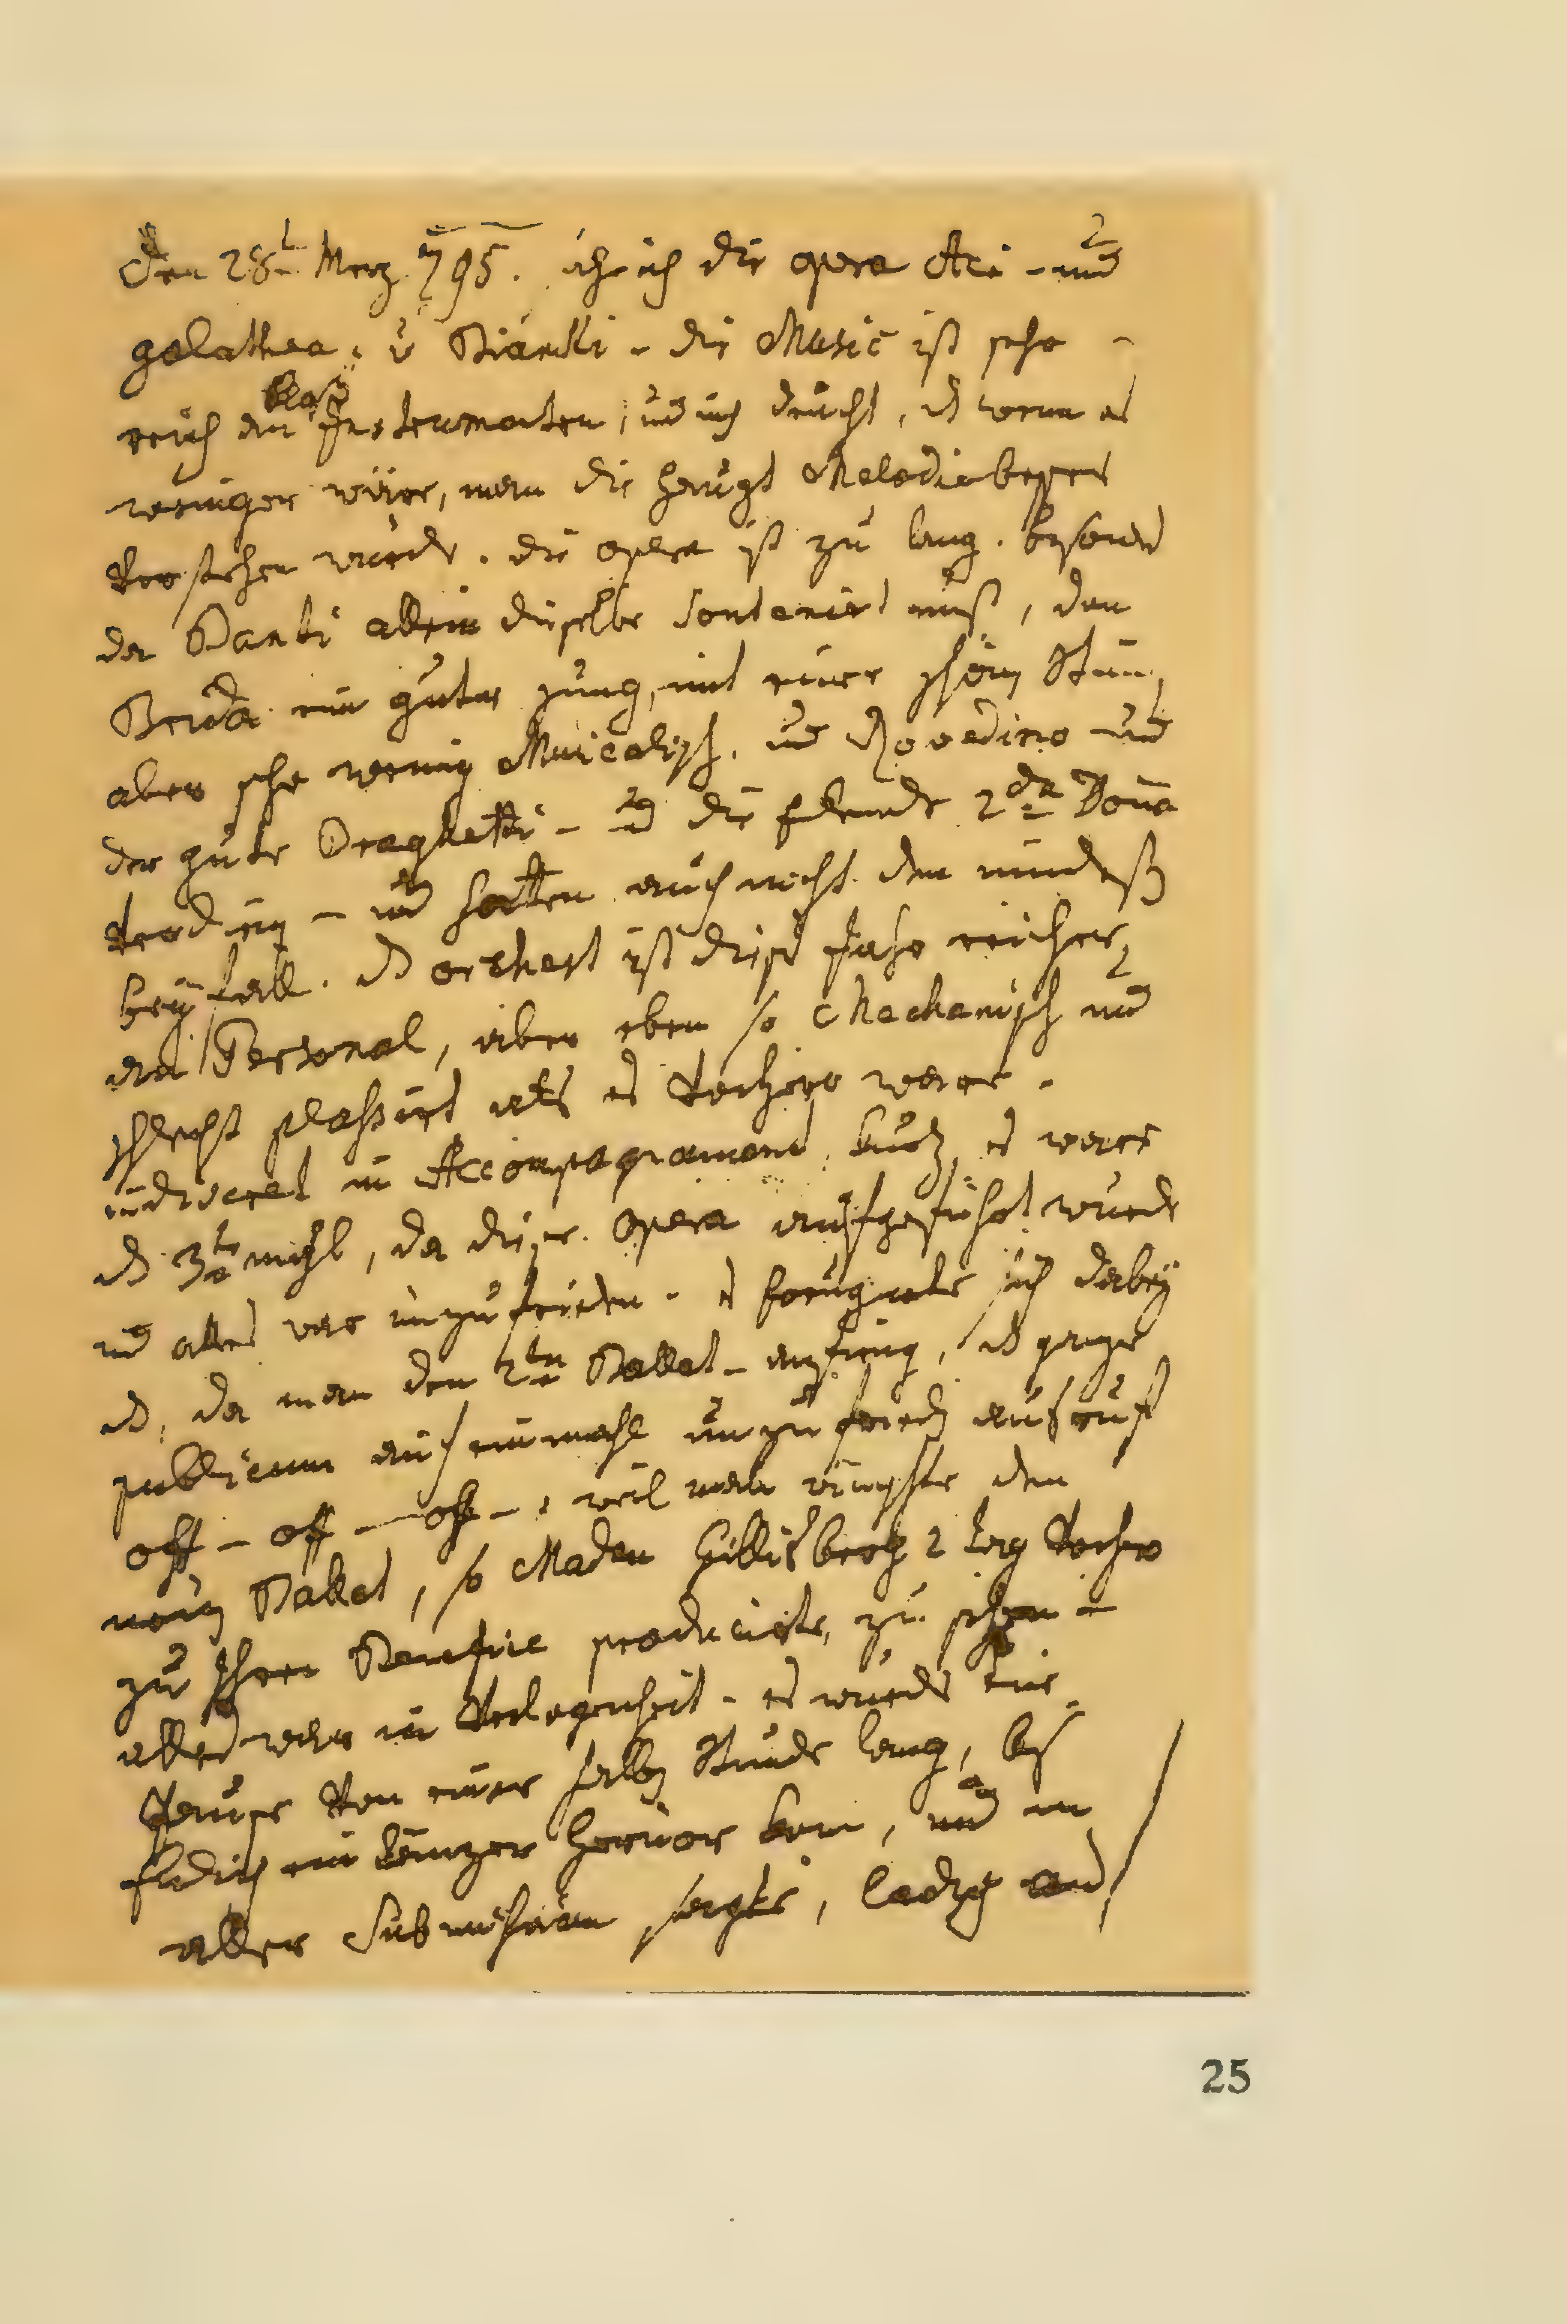 Den 28t Merz 795. sah ich die opera Aci - und
galathea. v Bianchi - die Music ist sehr -
reich an blas Instrumenten, und mich deucht, dß wenn es
weniger wäre, man die haupt Melodie besser
verstehen würde. die opera ist zu lang. besonders
da Banti allein dieselbe souteniert muß, den
Brida ein guter jung, mit einer schönen Stim,
aber sehr wenig Musicalisch. und Rovedino und
der gute Draghetti - und die 2da Dona
verdienen - und hatten auch nicht den mindesten
beyfall. dß orchest ist dieses Jahr reicher
an Personal, aber eben so Mechanisch und
schlecht plassirt als es vorhero ware.
indiscret in Accompagnament, kurz, es ware
dß 3te mahl, da diese opera aufgeführt wurde
und alles war unzufrieden. es eraugnete sich dabey
dß, da man den 2ten Ballet - anfieng, dß ganze
publicum auf einmahl unzufrieden ausruft
off - off - off - weil man wünschte den
neuen Ballet, so Madam Hilligsberg 2 tag vorhero
zu Ihren Benefice producirte, zu sehen -
alles ware in verlegenheit - es wurde eine
Pause von einer halben Stunde lang, bis
endlich ein tänzer hervor kam, und in
aller submission sagte, ladys and
25